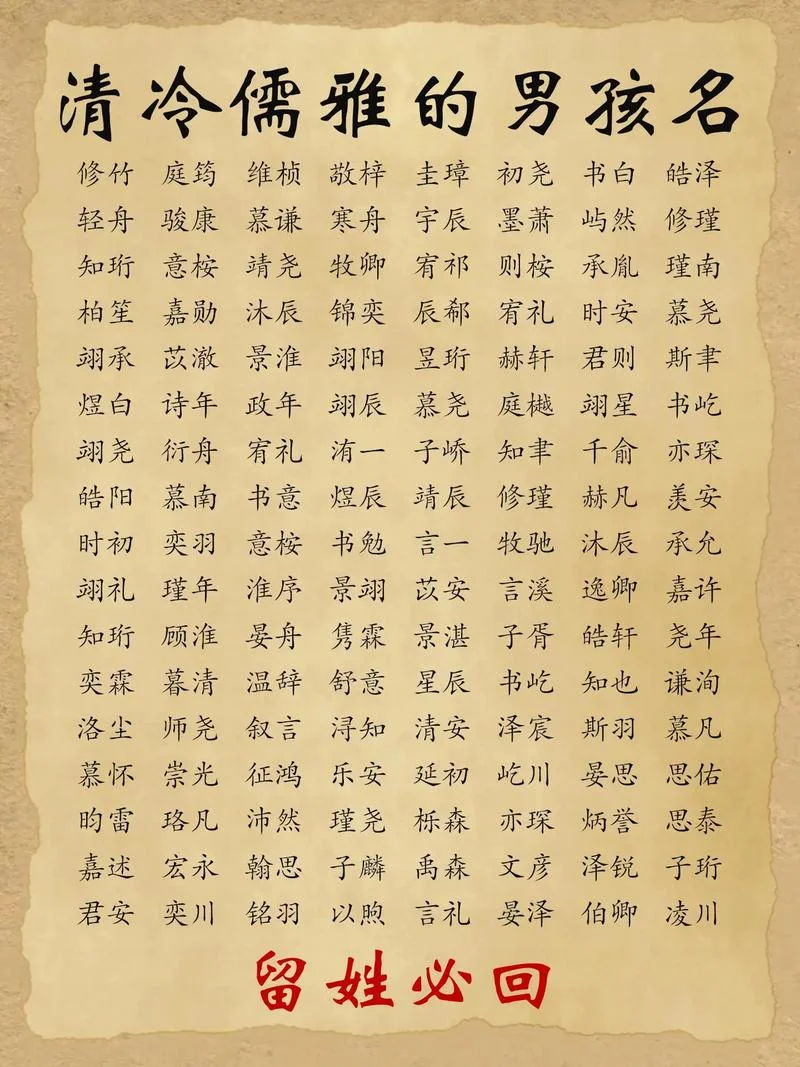 清冷儒雅的男孩名
修竹 庭筠 维桢 敬梓 圭璋 初尧 书白 皓泽
轻舟 骏康 慕谦 寒舟 宇辰 墨萧 屿然 修瑾
知珩 意桉 靖尧 牧卿 宥祁 则桉 承胤 瑾南
柏笙 嘉勋 沐辰 锦奕 辰郗 宥礼 时安 慕尧
翊承 苡澈 景淮 翊阳 昱珩 赫轩 君则 斯聿
煜白 诗年 政年 翊辰 慕尧 庭樾 翊星 书屹
翊尧 衍舟 宥礼 洧一 子峤 知聿 千俞 亦琛
皓阳 慕南 书意 煜辰 靖辰 修瑾 赫凡 羡安
时初 奕羽 意桉 书勉 言一 牧驰 沐辰 承允
翊礼 瑾年 淮序 景翊 苡安 言溪 逸卿 嘉许
知珩 顾淮 晏舟 隽霖 景湛 子胥 皓轩 尧年
奕霖 暮清 温辞 舒意 星辰 书屹 知也 谦洵
洛尘 师尧 叙言 浔知 清安 泽宸 斯羽 慕凡
慕怀 崇光 征鸿 乐安 延初 屹川 晏思 思佑
昀雷 珞凡 沛然 瑾尧 栎森 亦琛 炳誉 思泰
嘉述 宏永 翰思 子麟 禹森 文彦 泽锐 子珩
君安 奕川 铭羽 以煦 言礼 晏泽 伯卿 凌川
留姓必回